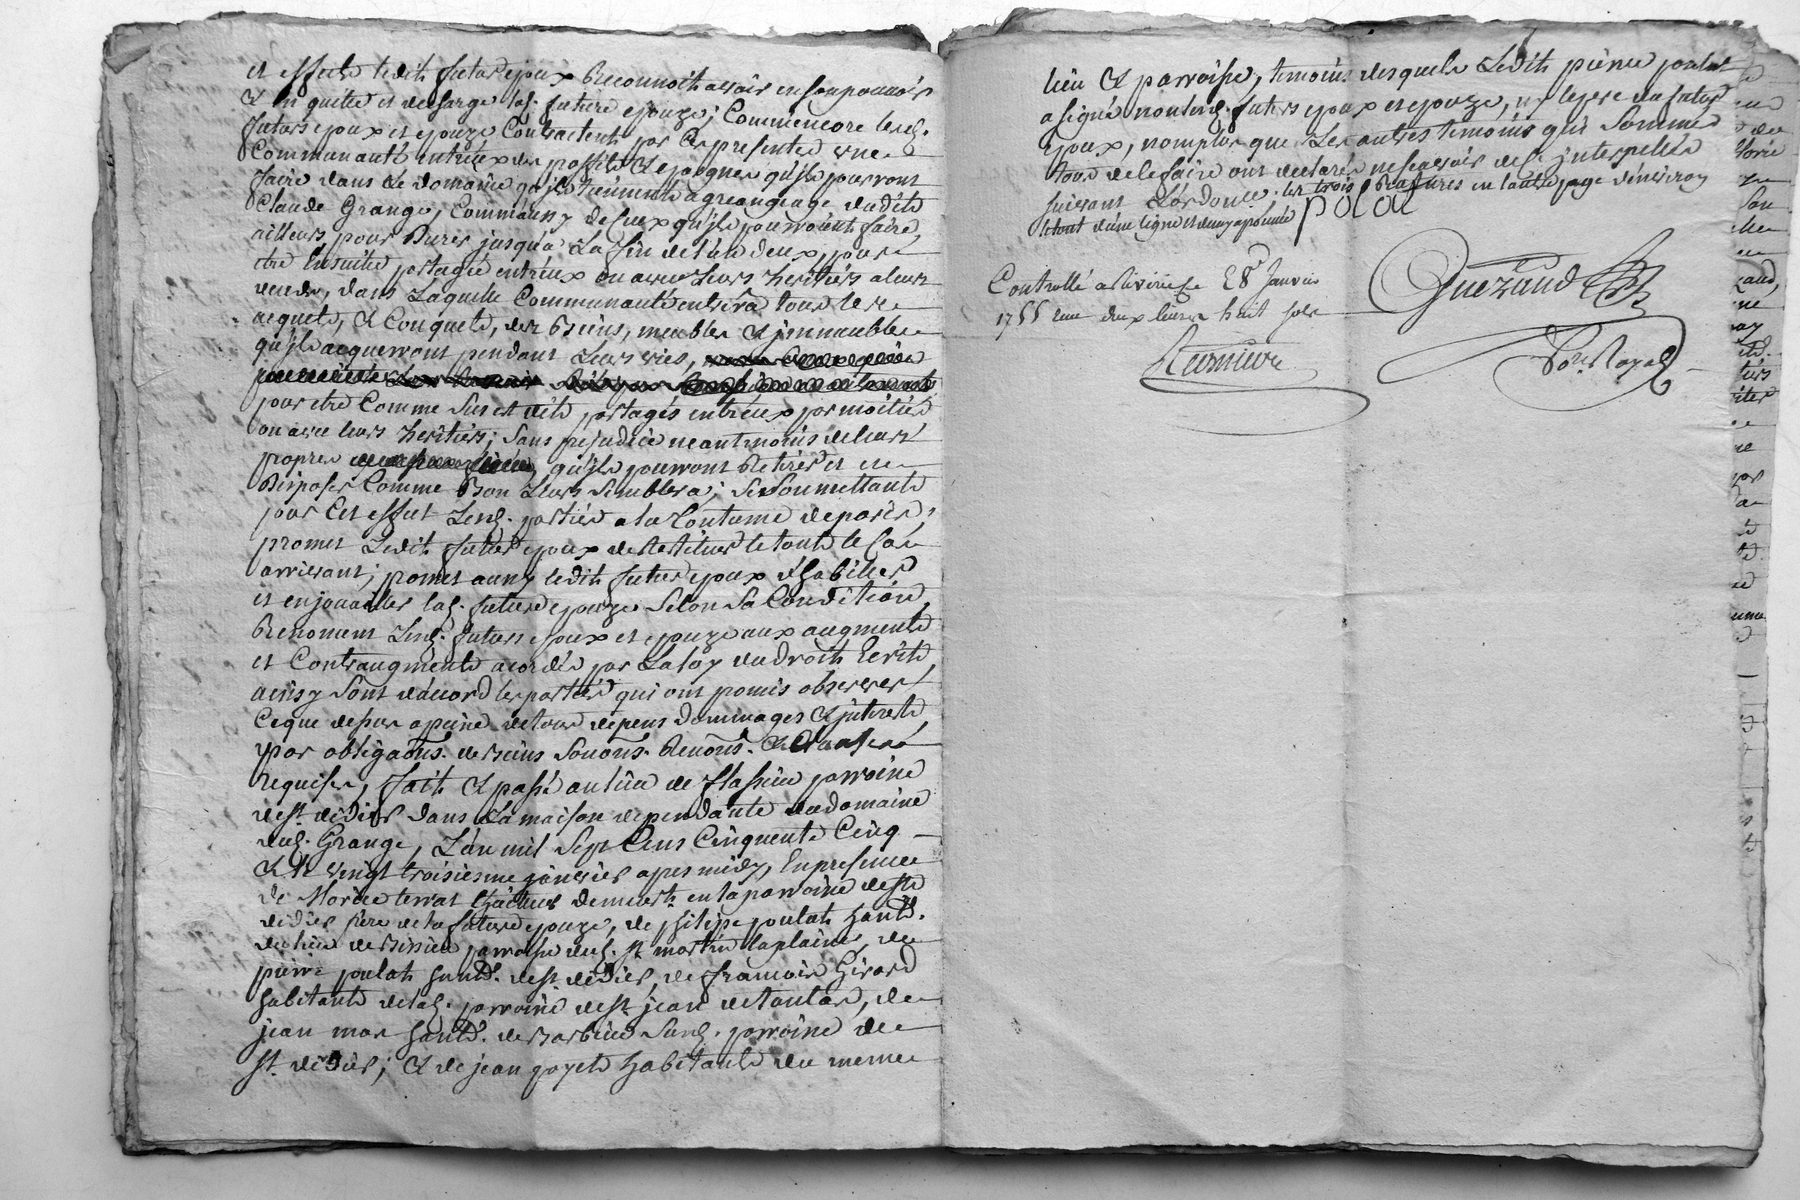 et effects ledit futur epoux Reconnoit avoir en son pouvoir
& en quitte et decharge lad. future epouze; Comme encore lesd.
futurs epoux et epouze Contractent par Ces presentes une
Communauté entreux des proffits & epargnes qu'ils pourront
faire dans le domaine qu'ils tiennent a grangeage dudit
Claude Grange, Comme aussy de Ceux qu'ils pourroient faire
ailleurs pour Durer jusqu'a La fin de l'un deux, pour
etre Ensuitte partagée entreux ou avec leurs heritiers a leurs
dans Laquelle Communauté entrera tous les
acquets, & Conquets, des Biens, meubles & immeubles
qu'ils acquerront pendant Leurs vies,
pour etre Comme Sus est dit partagés entreux par moitié
ou avec leurs heritiers; Sans prejudice neantmoins de leurs
propres qu'ils pourront Retirer et en
Disposer Comme Bon Leurs Semblera; Se Soumettants
pour Cet effect Lesd. parties a la Coutume de paris,
promet Ledit futur epoux de Restituer le tout le Cas
arrivant; promet aussy ledit futur epoux d'habiller
et enjouailler lad. future epouze Selon Sa Condition,
Renoncent Lesd. futurs epoux et epouze aux augments
et Contraugments acordés par La loy du droit Ecrit,
ainsy Sont d'acord les parties qui ont promis observer
Ce que dessus a peine de tous depens dommages & interets,
par obligaons. de Biens Soumons. Renons. & Clauses
Requises, fait & passé au lieu de flassieu parroisse
de st. didier dans La maison dependante du domaine
dud. Grange, L'an mil Sept Cens Cinquante Cinq
& le vingt troisiesme janvier apres midy, En presence
de demeurt. en la parroisse de st.
didier frere de la future epouze, de philipe poulat habt.
du lieu de Bissieu parroisse dud. st. martin la plaine, de
pierre poulat habt. de st. didier, de francois Girard
habitant de lad. parroisse de st. jean de toulas, de
jean mas habt. de Sud. parroisse de
st. didier; & de jean goyet habitant du meme
lieu & parroisse, temoins desquels Ledit pierre poulat
a signé non lesd. futurs epoux et epouze, ny le pere du futur
Epoux, nomplus que Les autres temoins qui Sommés
tous de le faire ont declarés ne scavoir de ce interpellés
suivant L'ordonce., les trois ratures en l'autre page d'environ
le tout d'une ligne et demy aprouvé polat
Controllé a Riverie Le 28e Janvier
1755 reçu deux livres huit sols
Guezand
No.re Royal